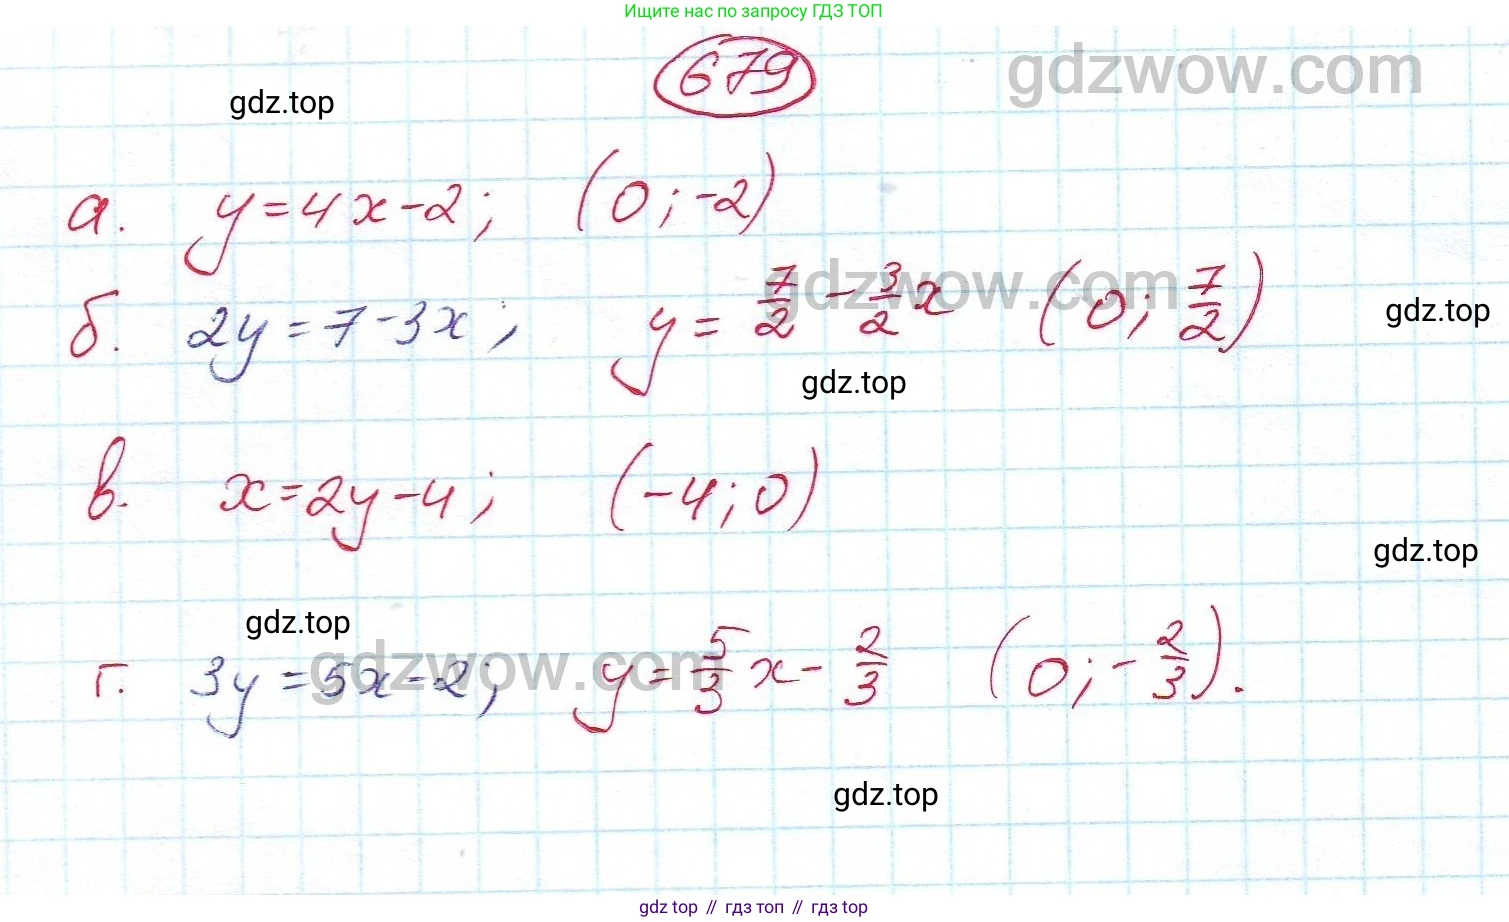 Ищите нас по запросу ГДЗ ТОП
679
gdzwow.com
gdz.top
а. y=4x-2; (0;-2)
gdzwow.com
б. 2y=7-3x; y=7/2-3/2x (0;7/2)
gdz.top
gdz.top
в. x=2y-4; (-4;0)
gdz.top
gdz.top
gdzwow.com
г. 3y=5x-2; y=5/3x-2/3 (0;-2/3).
gdz.top
gdz top // гдз топ // гдз top